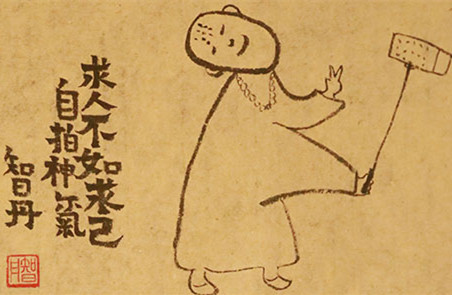 求人不如求己
自拍神氣
智丹